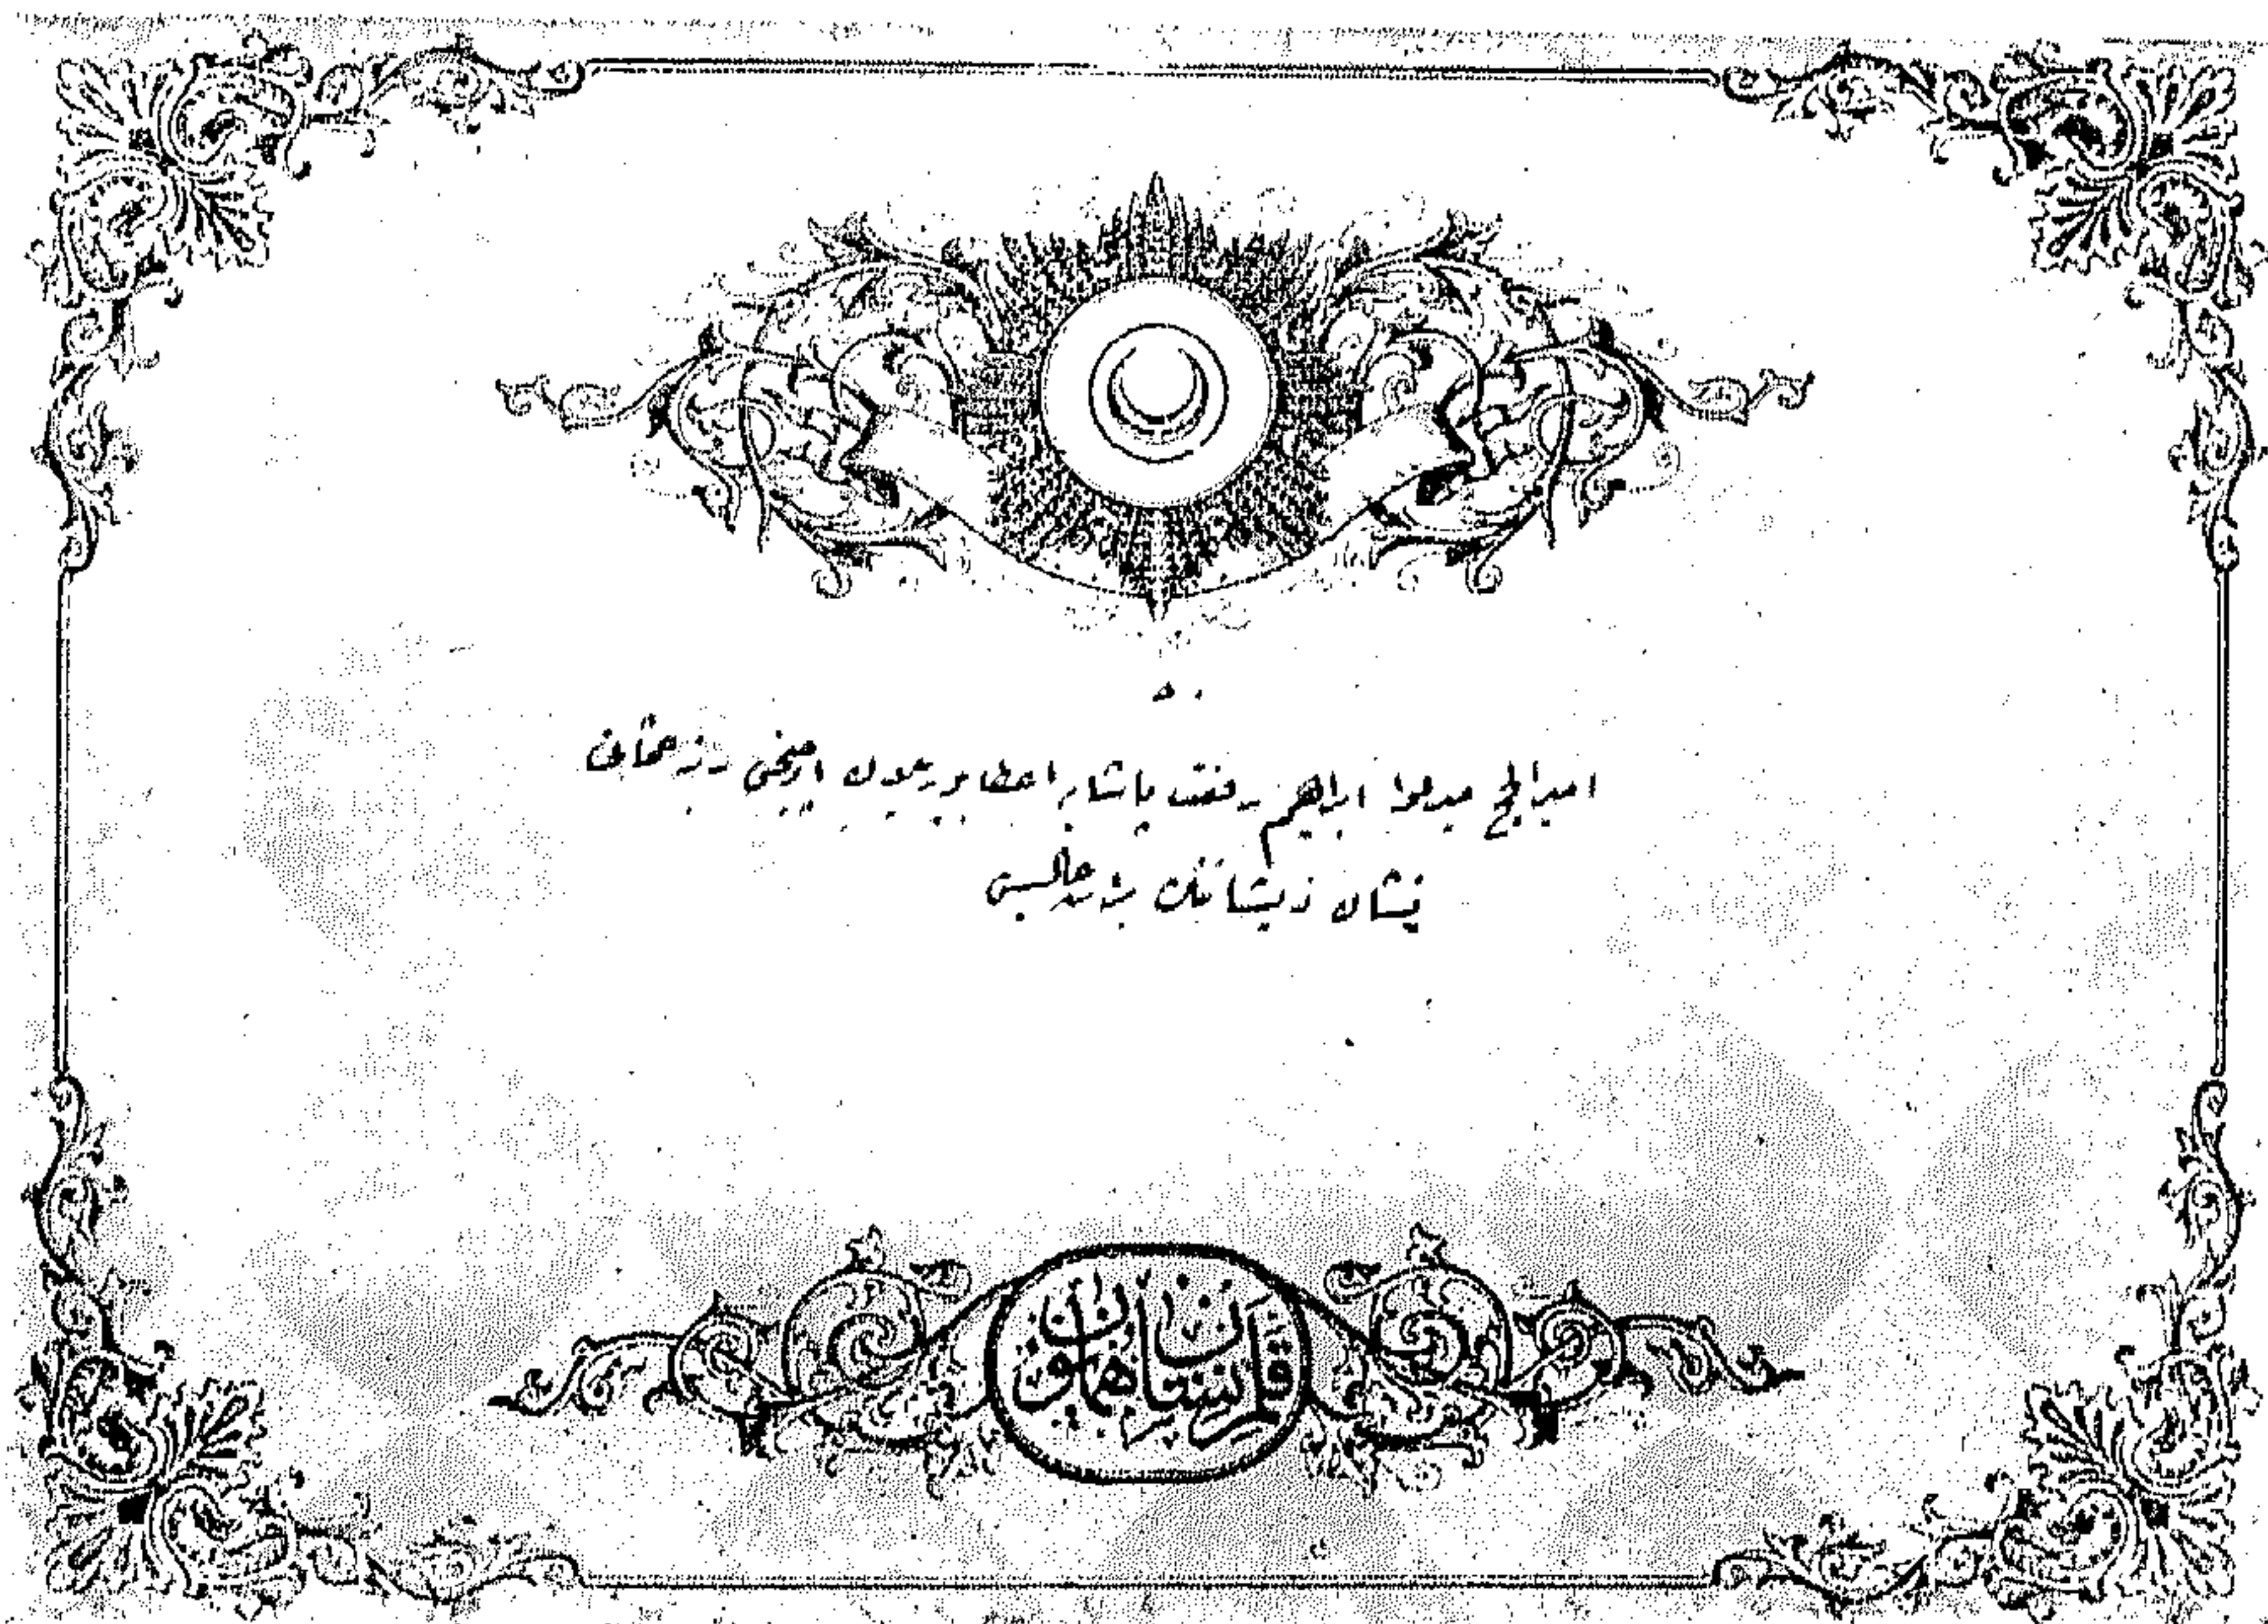 امير الحج ميرلوا ابراهيم رفعت پاشايه اعطا بوريلان اوچنجى رتبه عثمانى
نشان ذيشاننك براتعاليسى
قلم نشان همايون